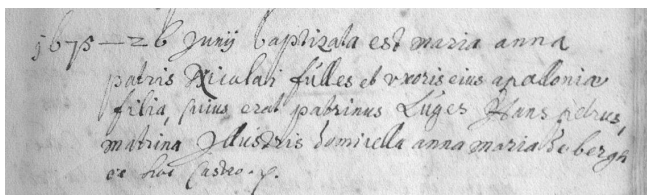 1675 — 26 Junij baptizata est maria anna
patris Nicolati fülles et vxoris eius apaloniæ
filia, cuius erat patrinus Lüges Hans petrus,
matrina Illustris Domicella anna maria de berga
ex hoc Castro.